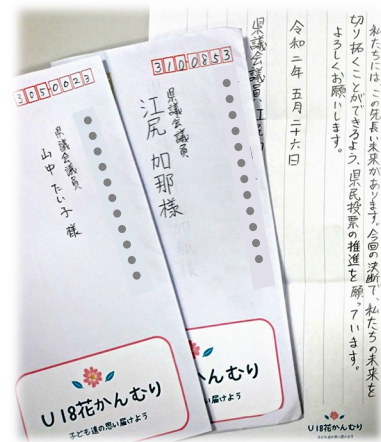 私たちには、この先長い未来があります。今回の決断で、私たちの未来を
切り拓くことができるよう、県民投票の推進を願っています。
よろしくお願いします。
令和二年 五月二十六日
県議会議員 江
3100853
県議会議員
江尻 加那 様
んむり
い届けよう
3050023
県議会議員
山中 たい子 様
U18花かんむり
子ども達の思い届けよう
U18花かんむり